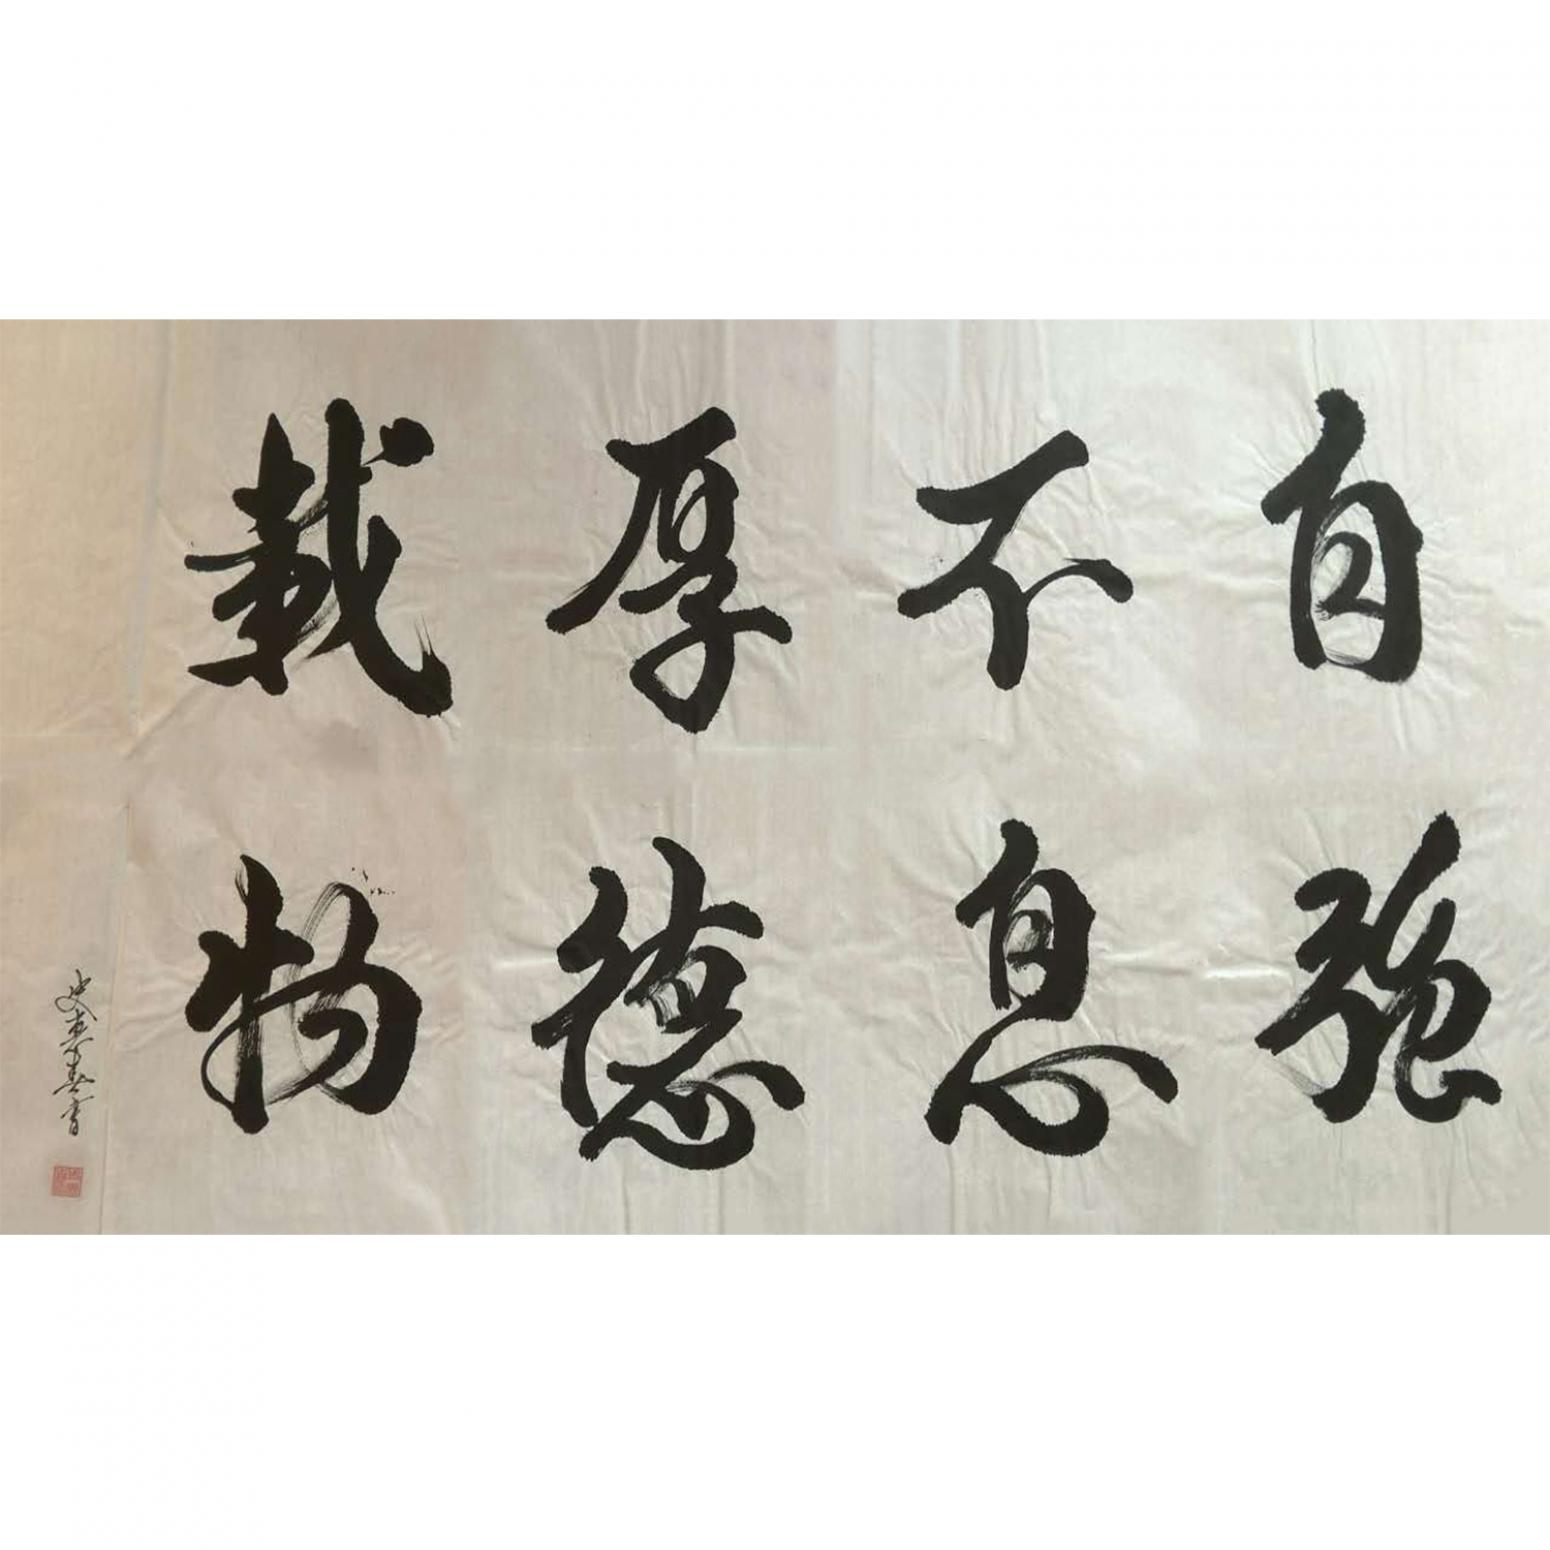 自强
不息
厚德
载物